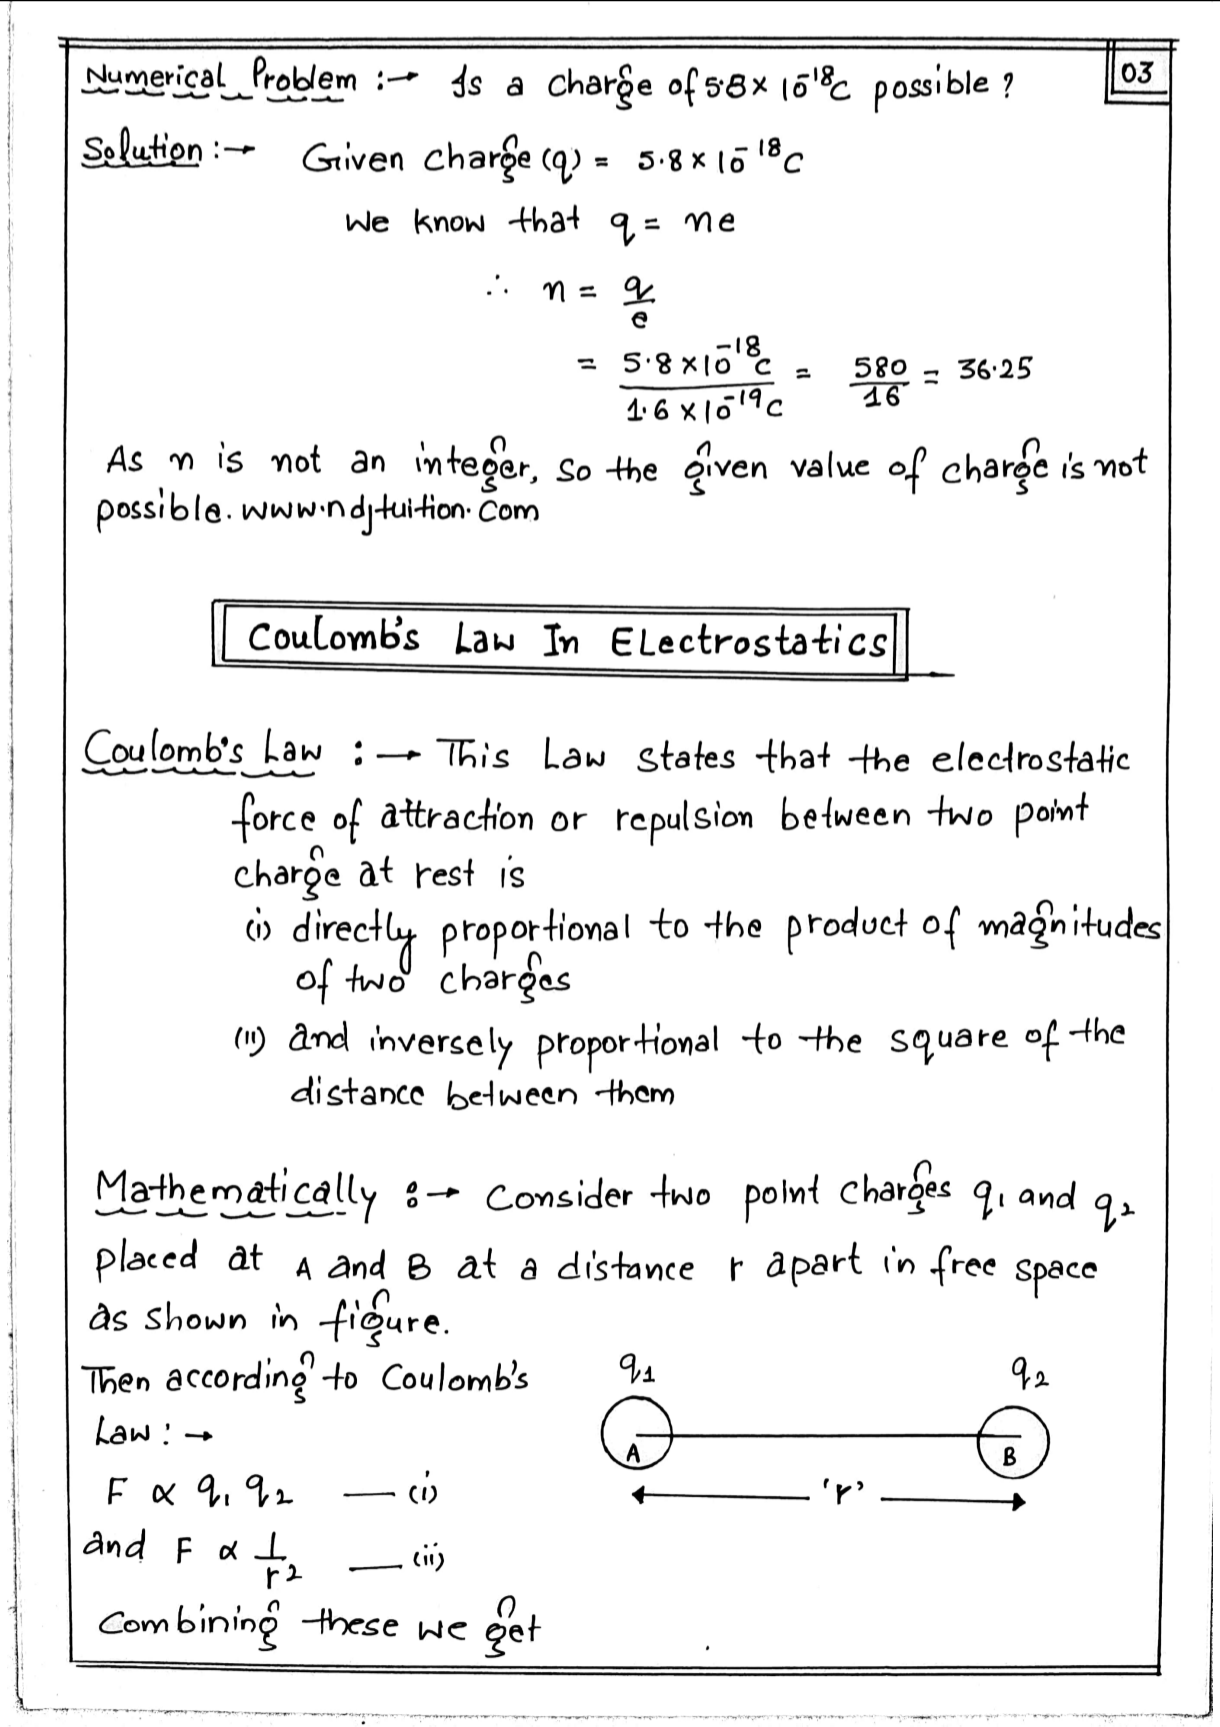 03
Numerical Problem :→ Is a charge of 5.8 × 10⁻¹⁸C possible ?
Solution :→ Given charge (q) = 5.8 × 10⁻¹⁸C
We know that q = ne
∴ n = q/e
= 5.8×10⁻¹⁸C / 1.6×10⁻¹⁹C = 580/16 = 36.25
As n is not an integer, so the given value of charge is not
possible. www.ndjtuition.com
Coulomb's Law In Electrostatics
Coulomb's Law :→ This Law states that the electrostatic
force of attraction or repulsion between two point
charge at rest is
(i) directly proportional to the product of magnitudes
of two charges
(ii) and inversely proportional to the square of the
distance between them
Mathematically :→ Consider two point charges q₁ and q₂
placed at A and B at a distance r apart in free space
as shown in figure.
Then according to Coulomb's
Law :→
F ∝ q₁ q₂ — (i)
and F ∝ 1/r² — (ii)
Combining these we get
q₁ q₂
A B
'r'